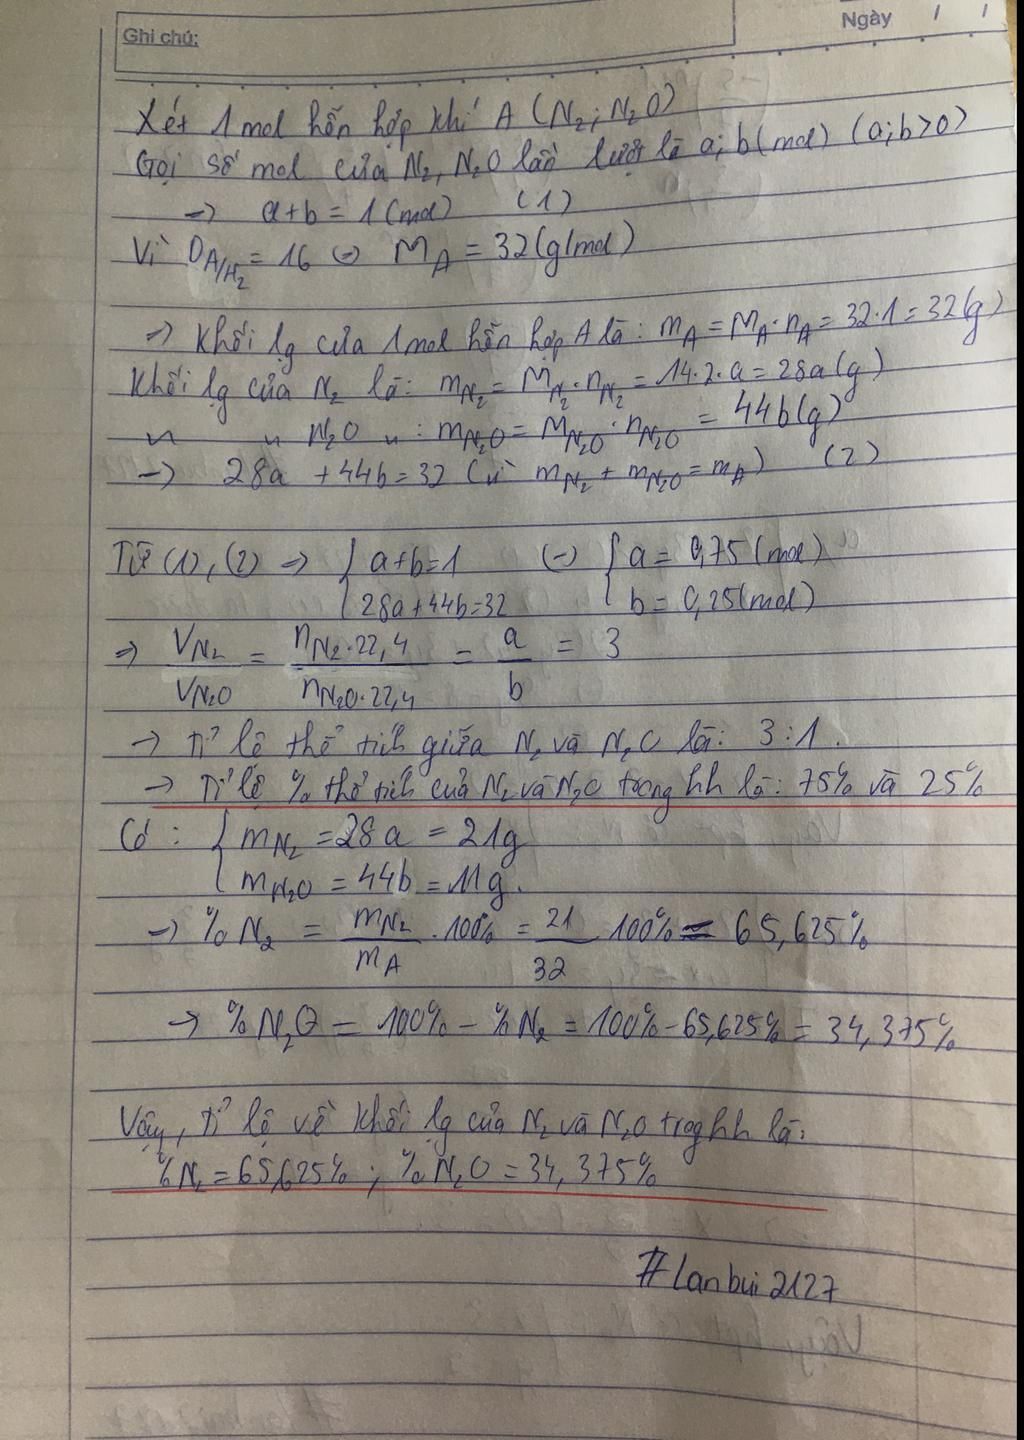 Ghi chú:
Ngày / /
Xét 1 mol hỗn hợp khí A (N₂; N₂O)
Gọi số mol của N₂, N₂O lần lượt là a; b (mol) (a; b > 0)
→ a + b = 1 (mol) (1)
Vì D_A/H₂ = 16 ⇔ M_A = 32 (g/mol)
⇒ Khối lg của 1 mol hỗn hợp A là: m_A = M_A · n_A = 32 · 1 = 32 (g)
Khối lg của N₂ là: m_N₂ = M_N₂ · n_N₂ = 14 · 2 · a = 28a (g)
〃 〃 N₂O 〃 : m_N₂O = M_N₂O · n_N₂O = 44b (g)
→ 28a + 44b = 32 (vì m_N₂ + m_N₂O = m_A) (2)
Từ (1), (2) ⇒ { a + b = 1 (=) { a = 0,75 (mol)
28a + 44b = 32 b = 0,25 (mol)
⇒ V_N₂ / V_N₂O = n_N₂ · 22,4 / n_N₂O · 22,4 = a / b = 3
→ Tỉ lệ thể tích giữa N₂ và N₂O là: 3 : 1.
→ Tỉ lệ % thể tích của N₂ và N₂O trong hh là: 75% và 25%
Có : { m_N₂ = 28a = 21g
m_N₂O = 44b = 11g.
→ %N₂ = m_N₂ / m_A · 100% = 21 / 32 100% = 65,625%
→ %N₂O = 100% - %N₂ = 100% - 65,625% = 34,375%
Vậy, tỉ lệ về khối lg của N₂ và N₂O trog hh là:
%N₂ = 65,625% ; %N₂O = 34,375%
#lanbui2127